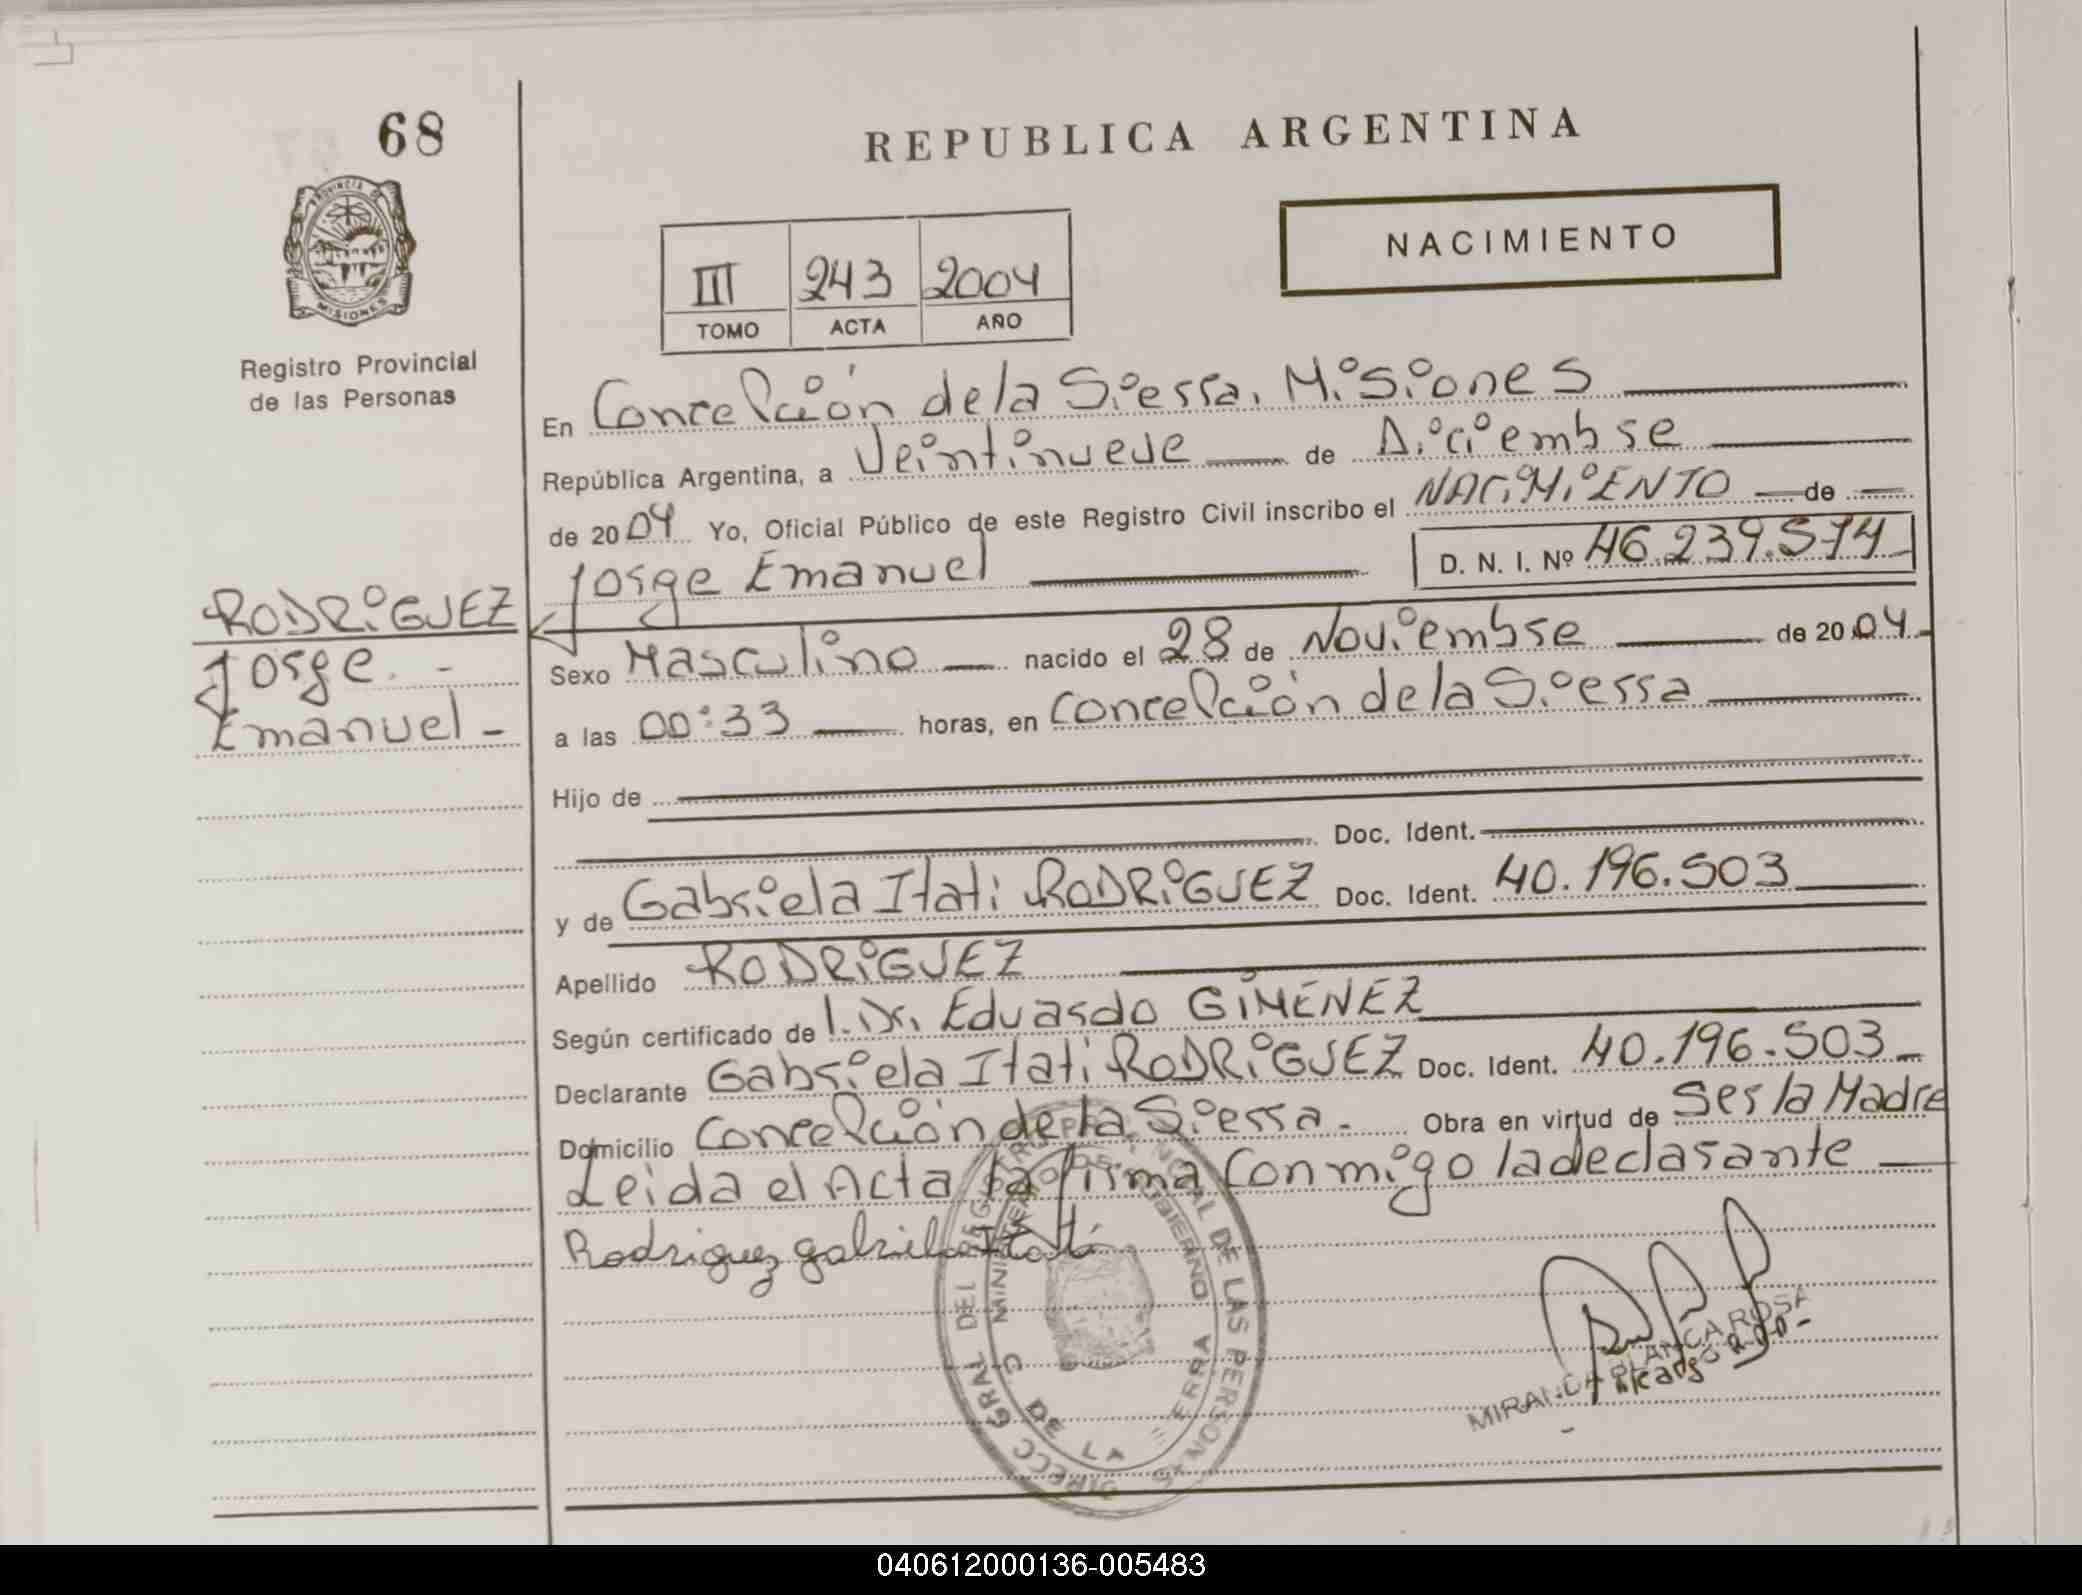 68
REPUBLICA ARGENTINA
PROVINCIA DE
MISIONES
Registro Provincial
de las Personas
III 243 2004
TOMO ACTA AÑO
NACIMIENTO
En Concepción de la Sierra, Misiones
República Argentina, a Veintinueve de Diciembre
de 2004 Yo, Oficial Público de este Registro Civil inscribo el NACIMIENTO de
Jorge Emanuel D. N. I. Nº 46.239.574
RODRIGUEZ
Jorge. -
Emanuel -
Sexo Masculino nacido el 28 de Noviembre de 2004.
a las 00:33 horas, en Concepción de la Sierra
Hijo de
Doc. Ident.
y de Gabriela Itati RODRIGUEZ Doc. Ident. 40.196.503
Apellido RODRIGUEZ
Según certificado de l. Dr. Eduardo GIMÉNEZ
Declarante Gabriela Itati RODRIGUEZ Doc. Ident. 40.196.503
Domicilio Concepción de la Sierra. Obra en virtud de Ser la Madre
Leida el Acta la firma Conmigo la declarante
Rodriguez gabriela Itatí
DIRECC GRAL DEL REGISTRO PROVINCIAL DE LAS PERSONAS
MINISTERIO DE GOBIERNO
C DE LA SIERRA
MIRANDA BLANCA ROSA
040612000136-005483